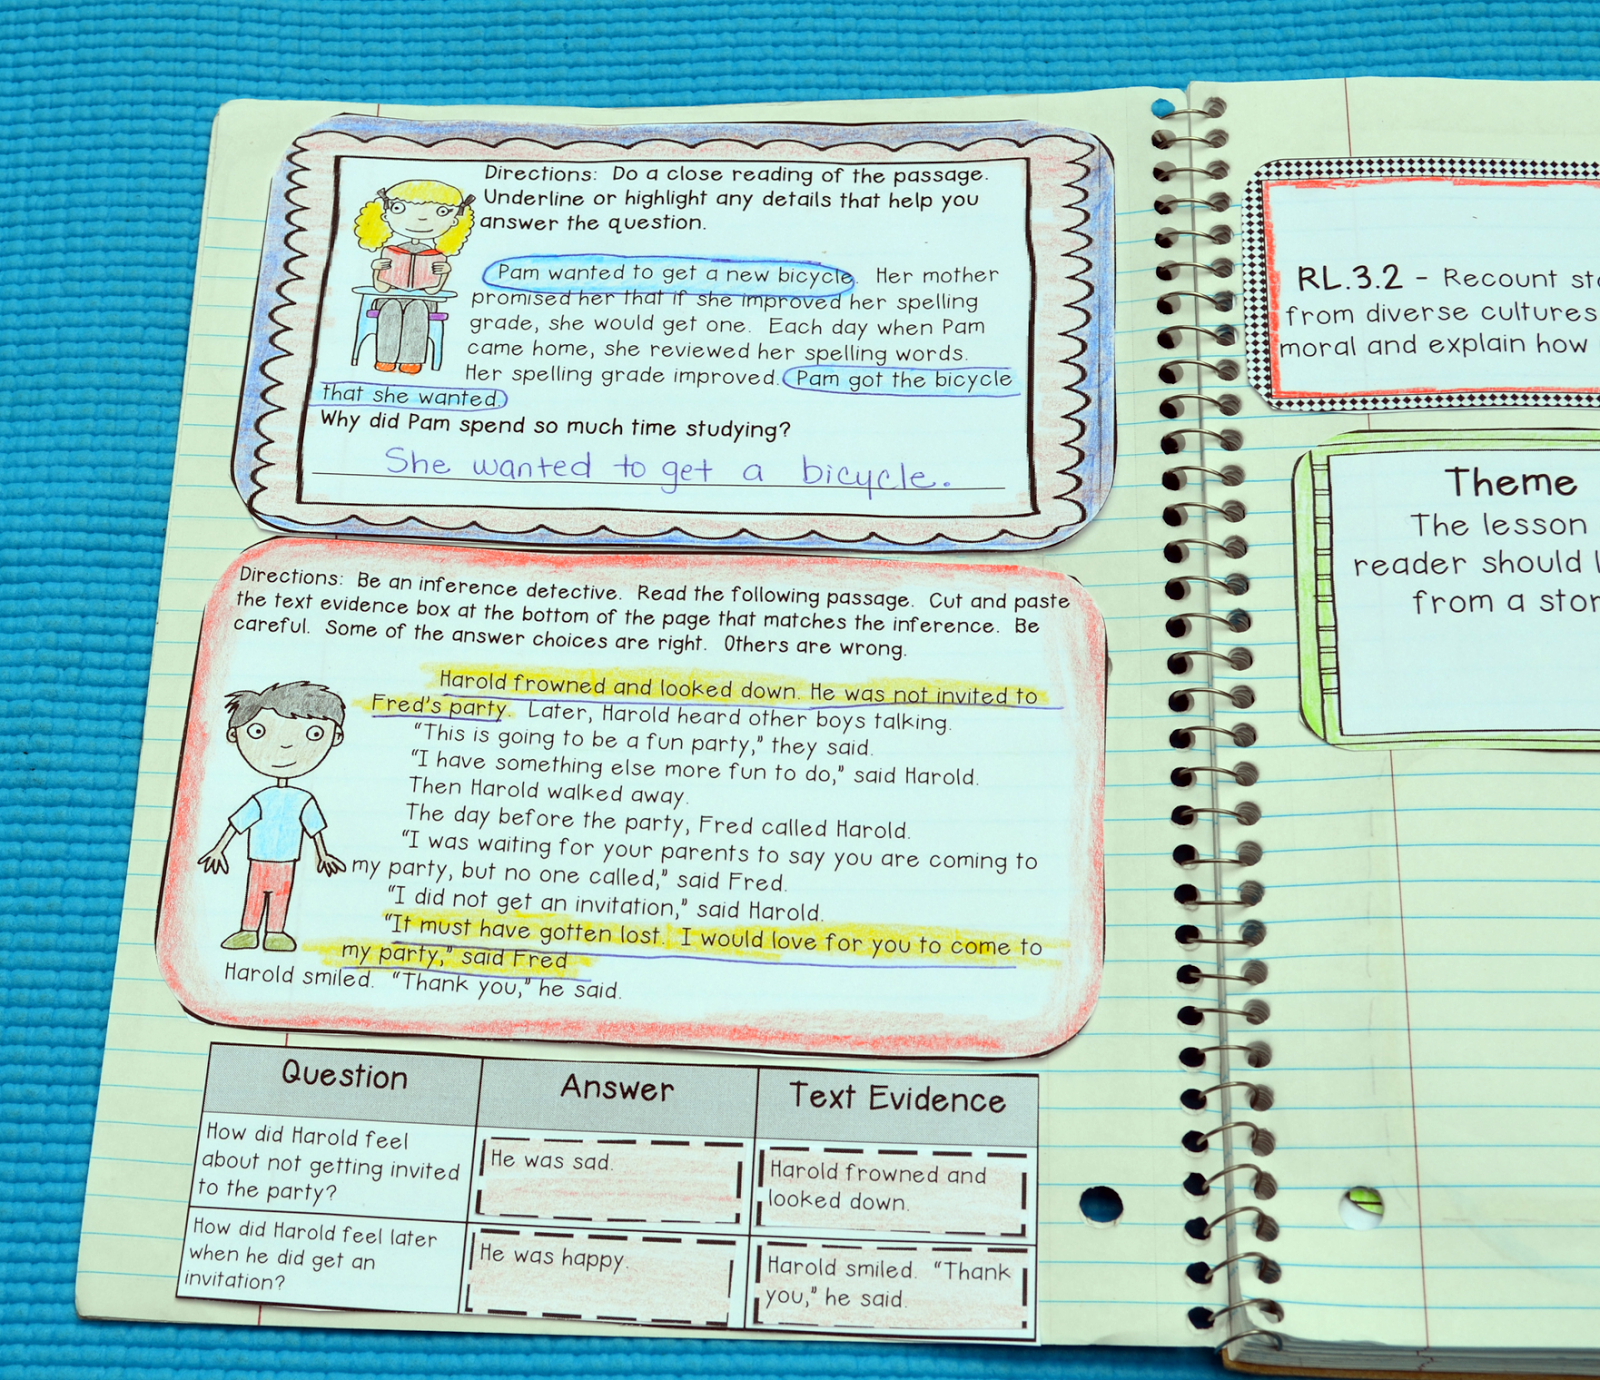 Directions: Do a close reading of the passage.
Underline or highlight any details that help you
answer the question.
Pam wanted to get a new bicycle. Her mother
promised her that if she improved her spelling
grade, she would get one. Each day when Pam
came home, she reviewed her spelling words.
Her spelling grade improved. Pam got the bicycle
that she wanted.
Why did Pam spend so much time studying?
She wanted to get a bicycle.
Directions: Be an inference detective. Read the following passage. Cut and paste
the text evidence box at the bottom of the page that matches the inference. Be
careful. Some of the answer choices are right. Others are wrong.
Harold frowned and looked down. He was not invited to
Fred's party. Later, Harold heard other boys talking.
"This is going to be a fun party," they said.
"I have something else more fun to do," said Harold.
Then Harold walked away.
The day before the party, Fred called Harold.
"I was waiting for your parents to say you are coming to
my party, but no one called," said Fred.
"I did not get an invitation," said Harold.
"It must have gotten lost. I would love for you to come to
my party," said Fred
Harold smiled. "Thank you," he said.
Question Answer Text Evidence
How did Harold feel
about not getting invited
to the party?
He was sad.
Harold frowned and
looked down.
How did Harold feel later
when he did get an
invitation?
He was happy.
Harold smiled. "Thank
you," he said.
RL.3.2 - Recount
from diverse cultures
moral and explain how
Theme
The lesson
reader should
from a